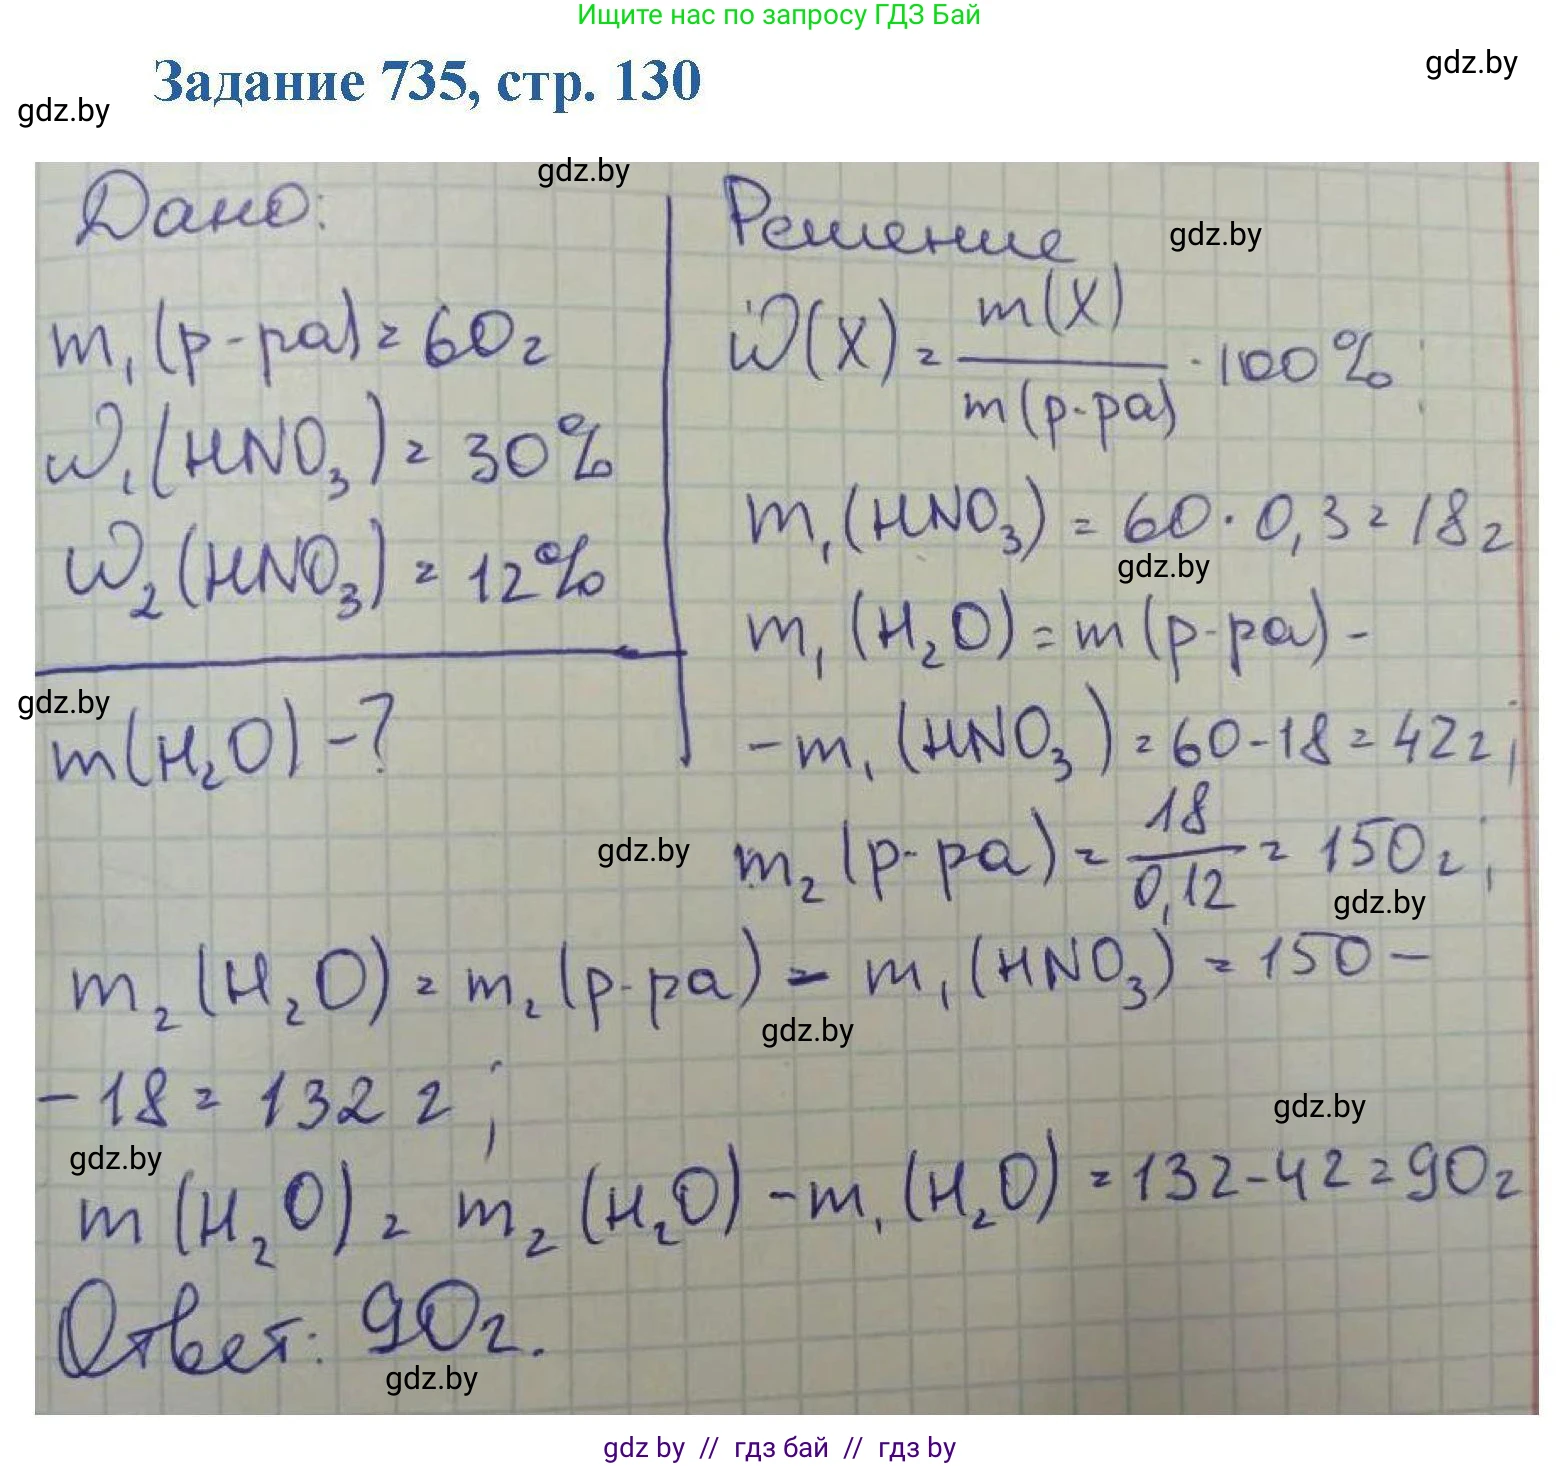 Ищите нас по запросу ГДЗ Бай
gdz.by
Задание 735, стр. 130
gdz.by
gdz.by
Дано:
m₁(р-ра) = 60г
W₁(HNO₃) = 30%
W₂(HNO₃) = 12%
gdz.by
m(H₂O) - ?
Решение
gdz.by
W(X) = m(X) / m(р-ра) · 100%;
m₁(HNO₃) = 60 · 0,3 = 18г
gdz.by
m₁(H₂O) = m(р-ра) -
- m₁(HNO₃) = 60 - 18 = 42г;
gdz.by
m₂(р-ра) = 18 / 0,12 = 150г;
gdz.by
m₂(H₂O) = m₂(р-ра) - m₁(HNO₃) = 150 -
gdz.by
- 18 = 132 г;
gdz.by
gdz.by
m(H₂O) = m₂(H₂O) - m₁(H₂O) = 132 - 42 = 90г
Ответ: 90г.
gdz.by
gdz by // гдз бай // гдз by